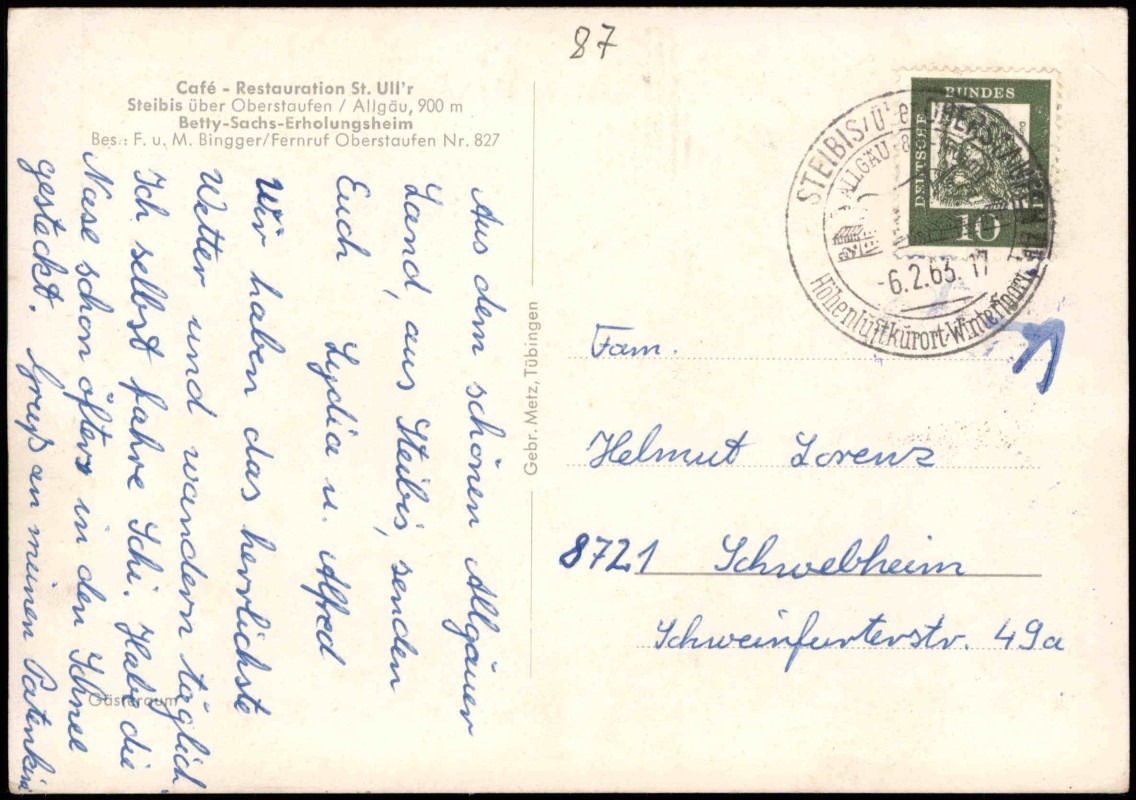 87
Café - Restauration St. Ull'r
Steibis über Oberstaufen / Allgäu, 900 m
Betty-Sachs-Erholungsheim
Bes.: F. u. M. Bingger/Fernruf Oberstaufen Nr. 827
Aus dem schönen Allgäuer
Land, aus Steibis, senden
Euch Lydia u. Alfred
Wir haben das herrlichste
Wetter und wandern täglich
Ich selbst fahre Schi. Habe die
Nase schon öfters in den Schnee
gesteckt. Gruß an meinen Patenkind
Gästeraum
Gebr. Metz, Tübingen
DEUTSCHE
BUNDES
10
STEIBIS/über OBERSTAUFEN
ALLGÄU
-6.2.63.17
Höhenluftkurort-Wintersport
Fam.
Helmut Lorenz
8721 Schwebheim
Schweinfurterstr. 49a